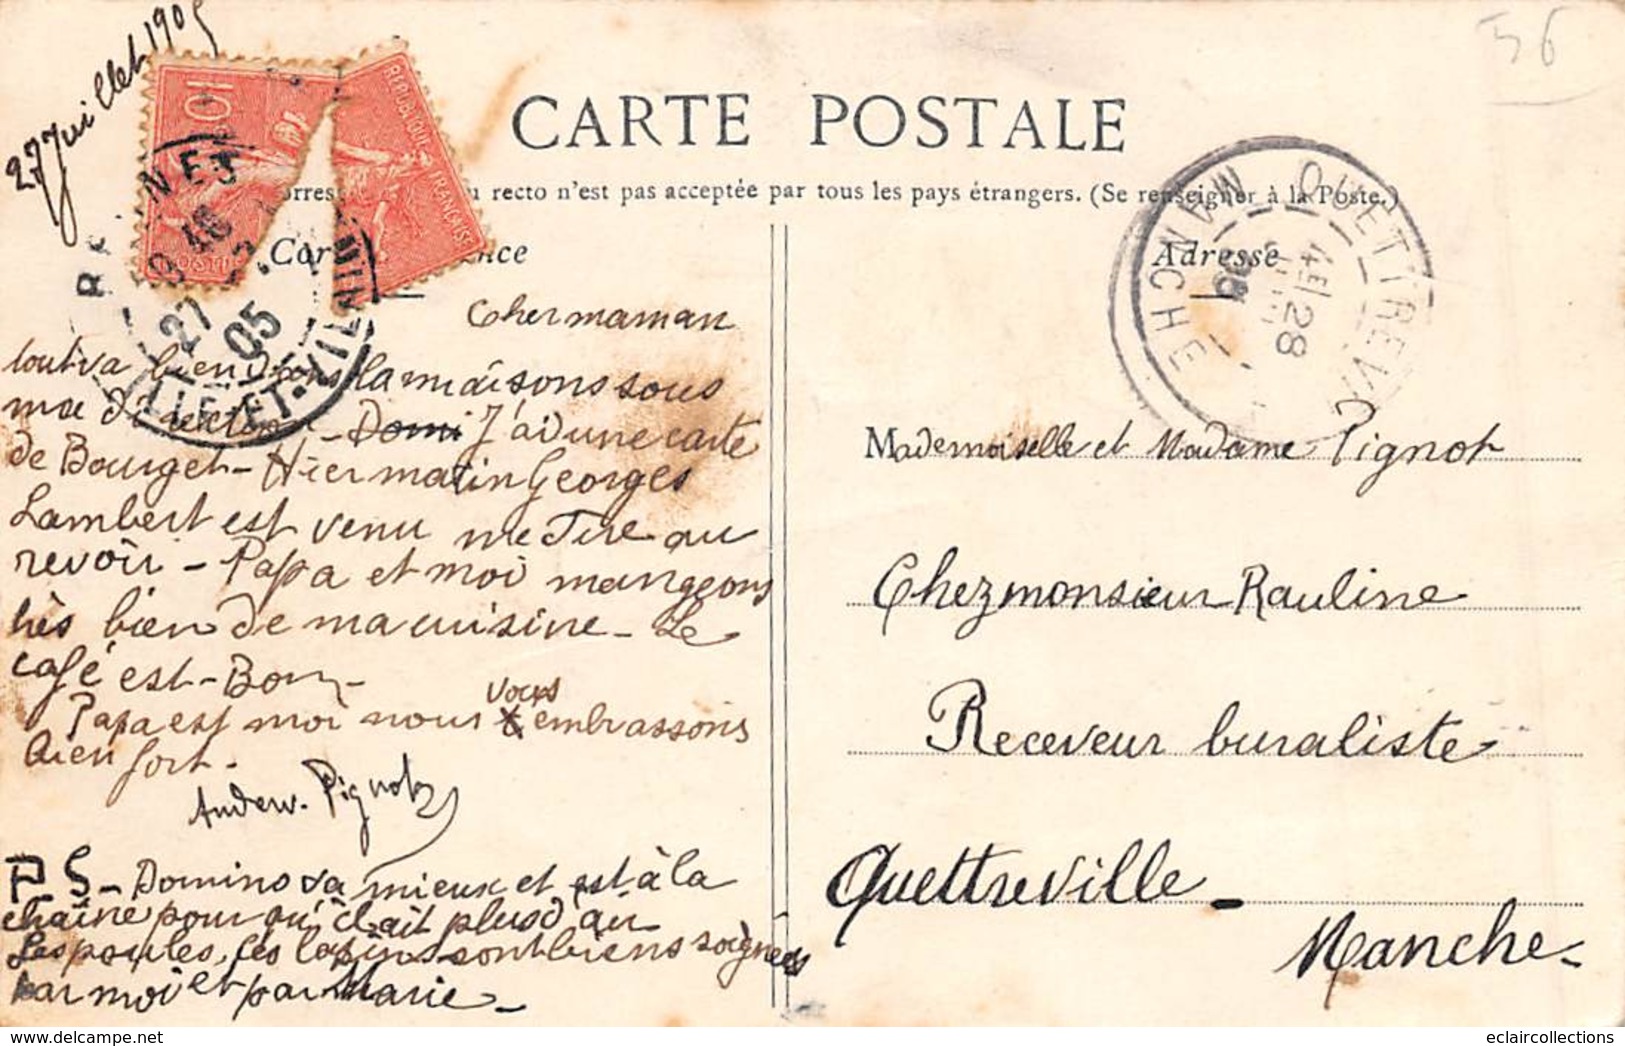 27 Juillet 1905
56
10
REPUBLIQUE FRANÇAISE
POSTES
RENNES
27
05
ILLE-ET-VILAINE
CARTE POSTALE
recto n'est pas acceptée par tous les pays étrangers. (Se renseigner à la Poste.)
Adresse
QUETTREVILLE
MANCHE
28
05
Cher maman
tout va bien dans la maisons sous
ma direction - Domi J'ai d une carte
de Bourget - Hier matin Georges
Lambert est venu me dire au
revoir - Papa et moi mangeons
très bien de ma cuisine - Le
café est Bon -
vous
Papa est moi nous t embrassons
bien fort -
Andrew. Pignot
P.S - Domino va mieux et est à la
chaîne pour qu'il ait plus d'air
Les poules, les lapins sont biens soignées
par moi et par Marie -
Mademoiselle et Madame Pignot
Chez monsieur Rauline
Receveur buraliste
Quettreville -
Manche -
www.delcampe.net
eclaircollections